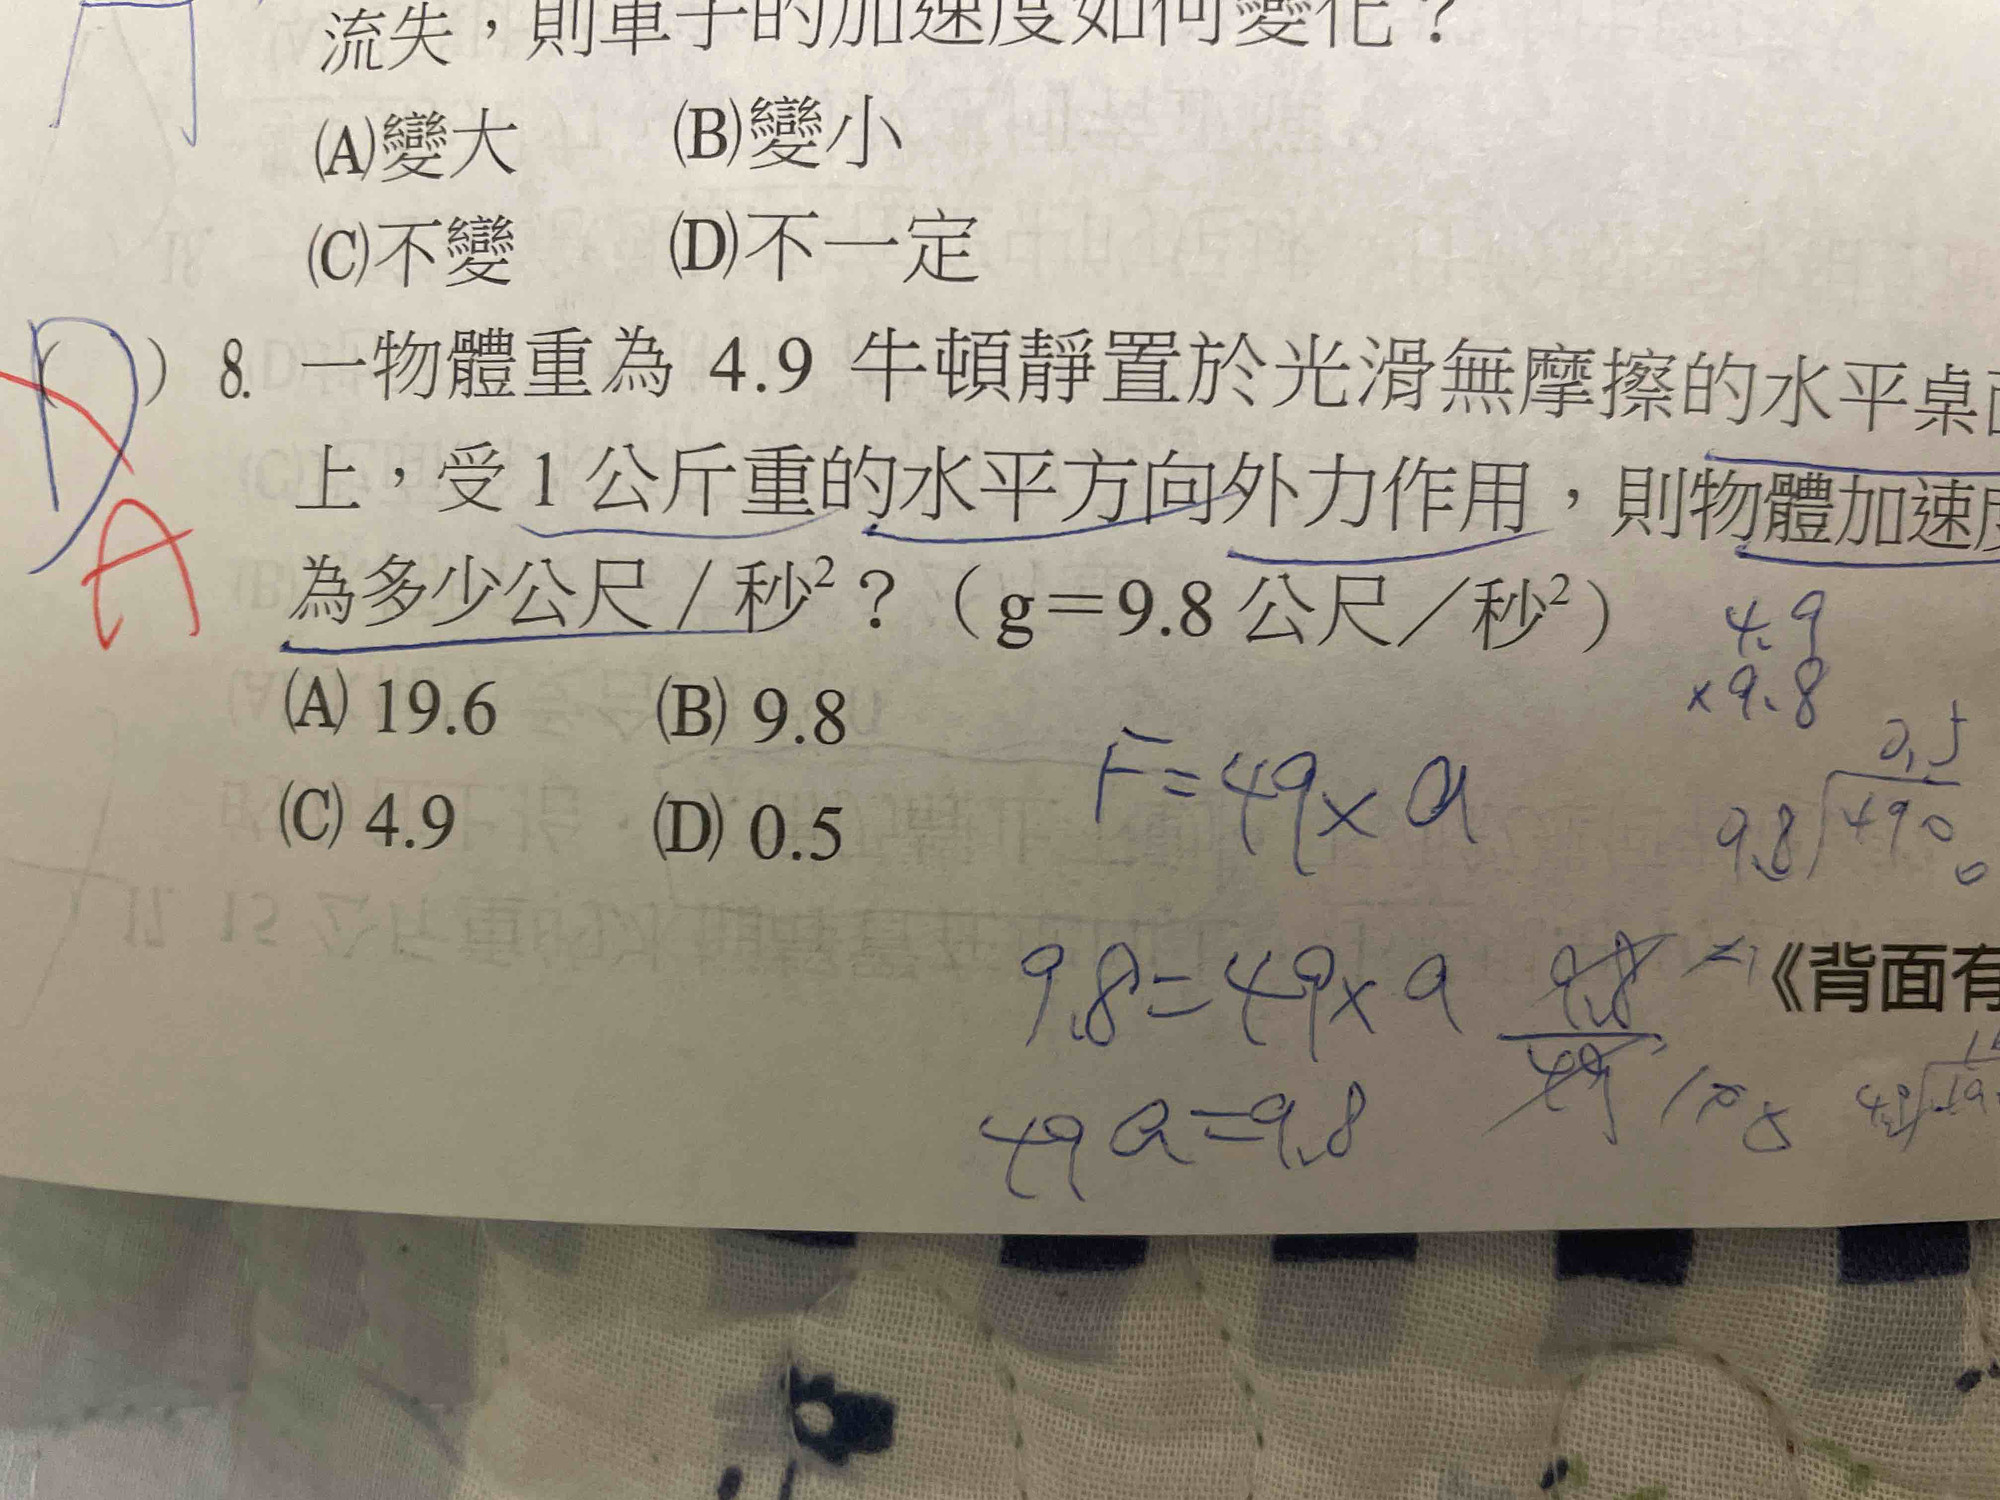 流失，則車子的加速度如何變化？
(A)變大 (B)變小
(C)不變 (D)不一定
D
A
( ) 8. 一物體重為 4.9 牛頓靜置於光滑無摩擦的水平桌面
上，受 1 公斤重的水平方向外力作用，則物體加速度
為多少公尺／秒²？（g＝9.8 公尺／秒²）
4.9
×9.8
(A) 19.6 (B) 9.8
F=49×a
0.5
9.8 490
0
(C) 4.9 (D) 0.5
9.8=49×a
9.8
49
《背面有
49a=9.8